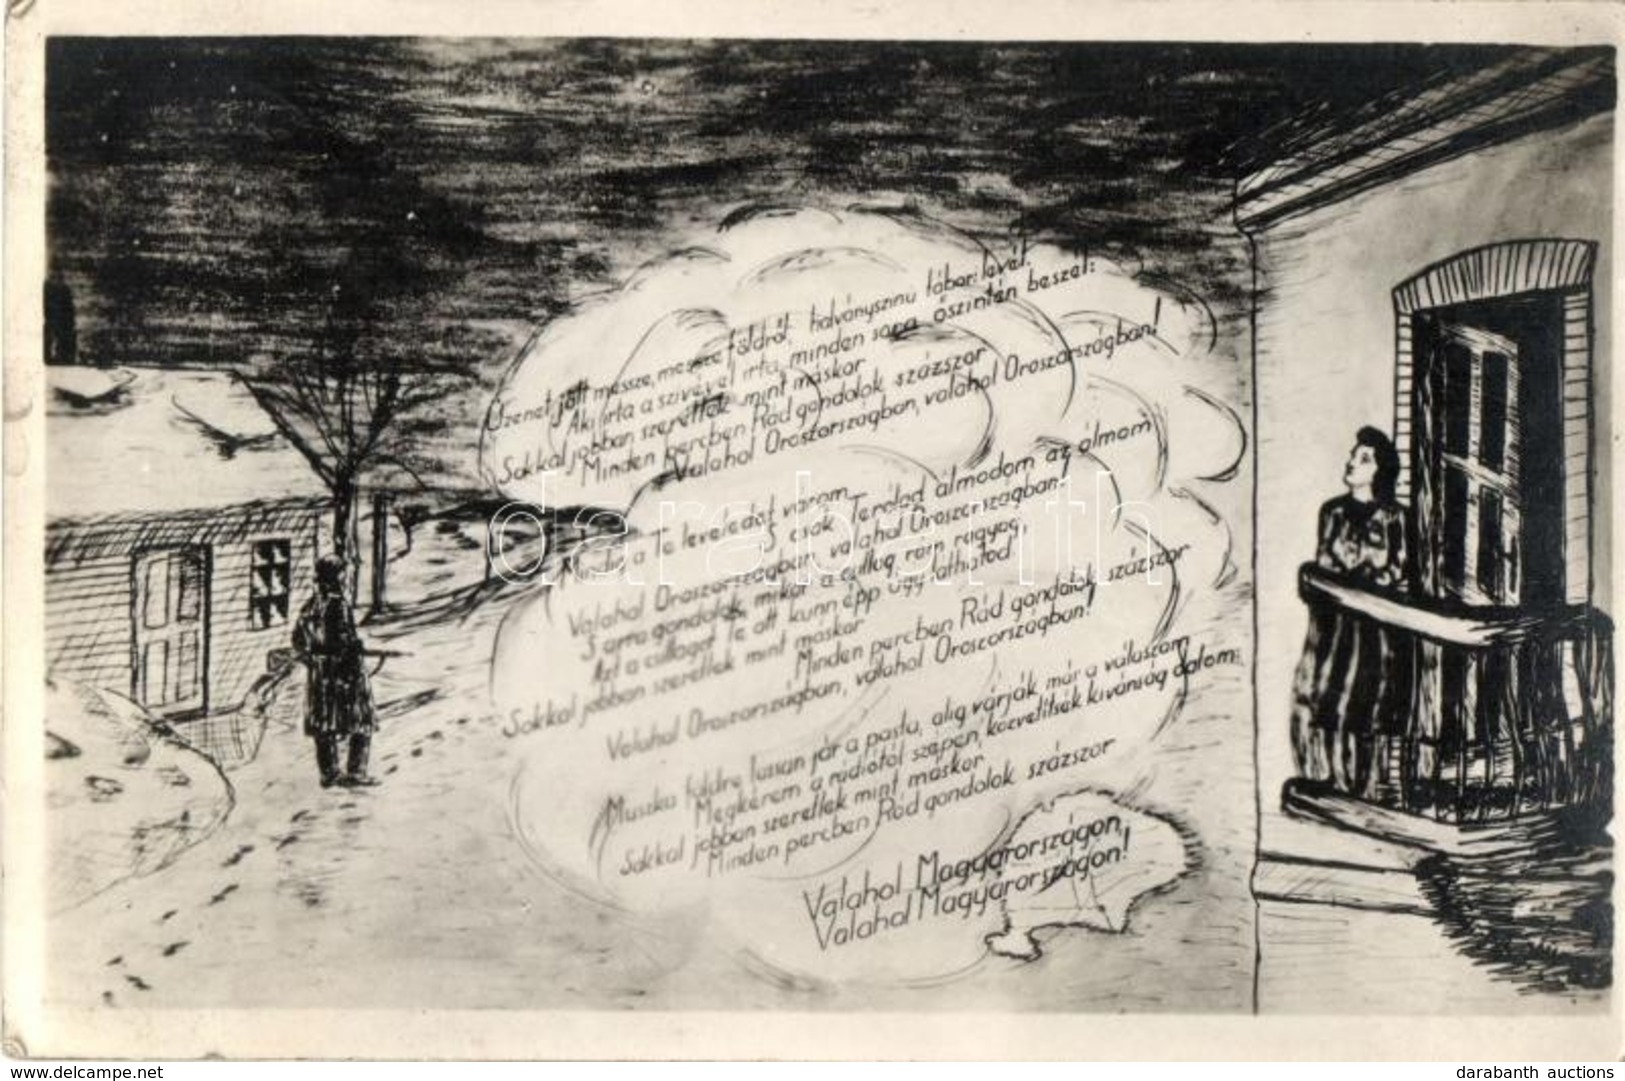 Üzenet jött messze, messze földről, halványszinü tábori levél.
Aki irta a szivével irta, minden sora őszintén beszél:
Sokkal jobban szeretlek mint máskor
Minden percben Rád gondolok százszor
Valahol Oroszországban, valahol Oroszországban!
Mindig a Te leveledet várom
S csak Terólad álmodom az álmom
Valahol Oroszországban, valahol Oroszországban!
S arra gondolok, mikor a csillag rám ragyog,
Azt a csillagot Te ott kunn épp úgy láthatod
Sokkal jobban szeretlek mint máskor
Minden percben Rád gondolok százszor
Valahol Oroszországban, valahol Oroszországban!
Muszka földre lassan jár a posta, alig várják már a válaszom
Megkérem a rádiótól szépen, közvetítsék kivánság dalom:
Sokkal jobban szeretlek mint máskor
Minden percben Rád gondolok százszor
Valahol Magyarországon,
Valahol Magyarországon!
darabanth
www.delcampe.net
darabanth auctions